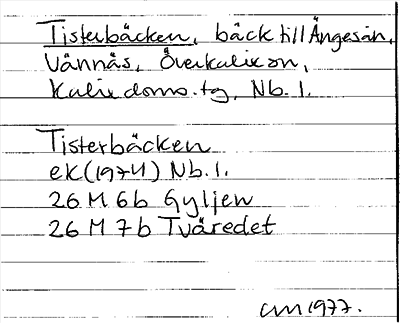 Tisterbäcken, bäck till Ängesån,
Vännäs, Överkalix sn,
Kalix doms.tg, Nb. l.
Tisterbäcken
ek(1974) Nb. l.
26 M 6b Gyljen
26 M 7b Tväredet
1977.